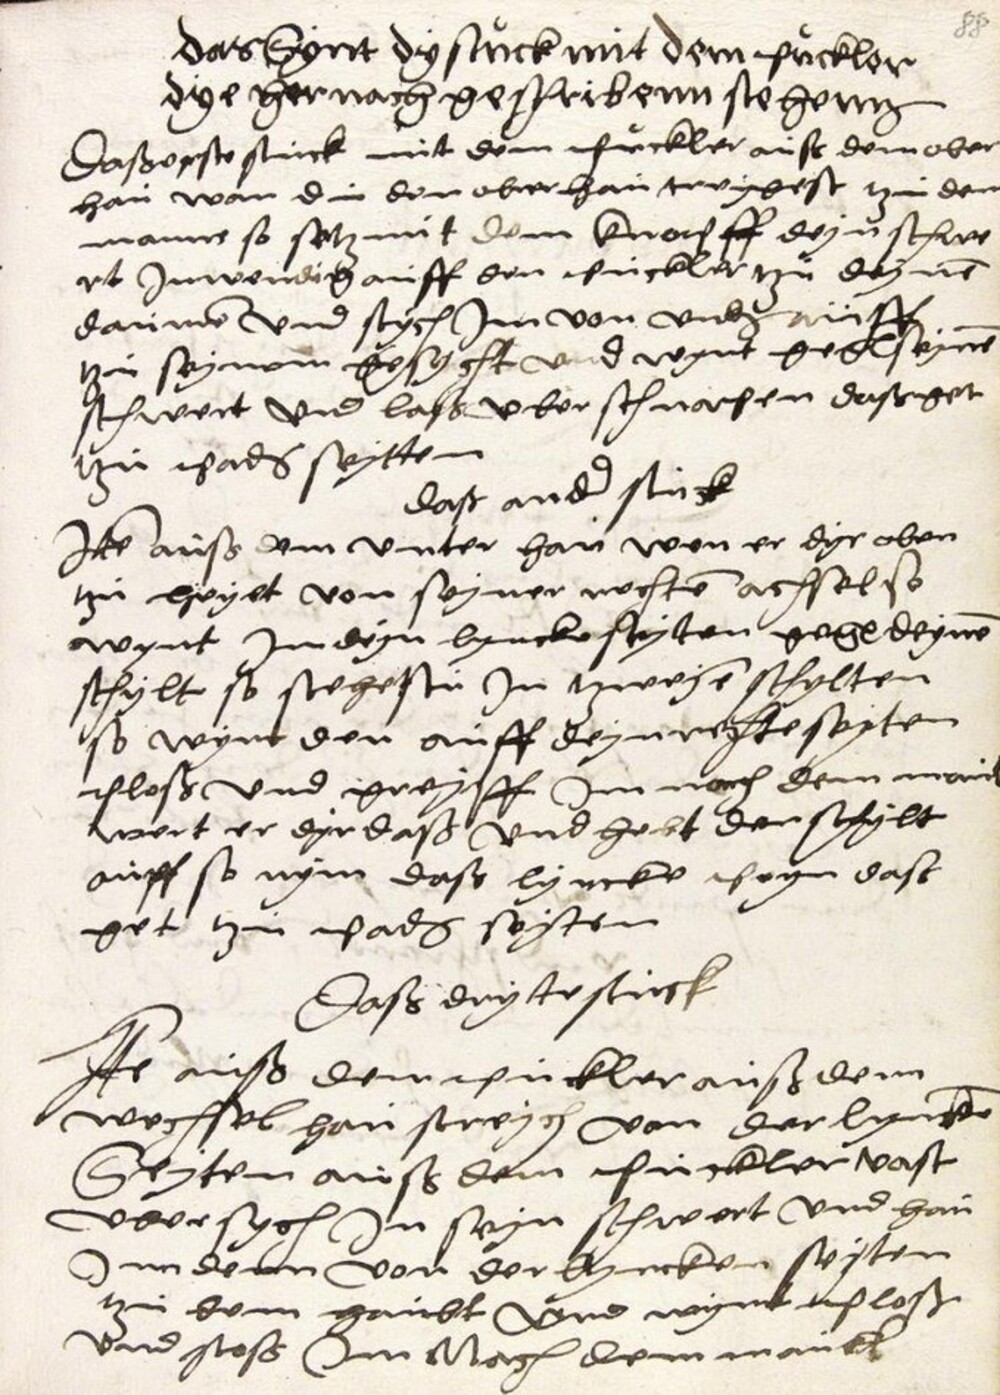 88
das Synt dy stuck mit dem puckler
dye hernach geschribenn stehenn
Daß erste stuck mit dem puckler auß dem ober
hau wan du den oberhau treybest tzu dem
manne so setz mit dem knopff deyn schwe
rt Inwendig auff den puckler tzu deyne
daume vnd stych Im von vnd auff
tzu seynem gesycht vnd wynt gegen seyne
schwert vnd laß vberschnapen daß get
tzu payden seytten
daß ander stuck
Ite auß dem vnter hau wen er dyr oben
tzu heyet von seyner rechte achsel so
wynt In deyn lyncke seyten gegen deyne
schylt so stehestu In tzweye schylten
so wynt den auff deyn rechte seyten
ploß vnd greyff Im nach dem maul
wert er dyr daß vnd hebt den schylt
auff so nym daß lyncke peyn daß
get tzu payden seyten
Daß dryte stuck
Ite auß dem puckler auß dem
wechsel hau streych von der lyncke
Seyten auß dem puckler vast
vbersych In seyn schwert vnd hau
Im denn von der lyncken seyten
tzu dem haubt vnd wynt ploß
vnd stoß Im Nach dem maul